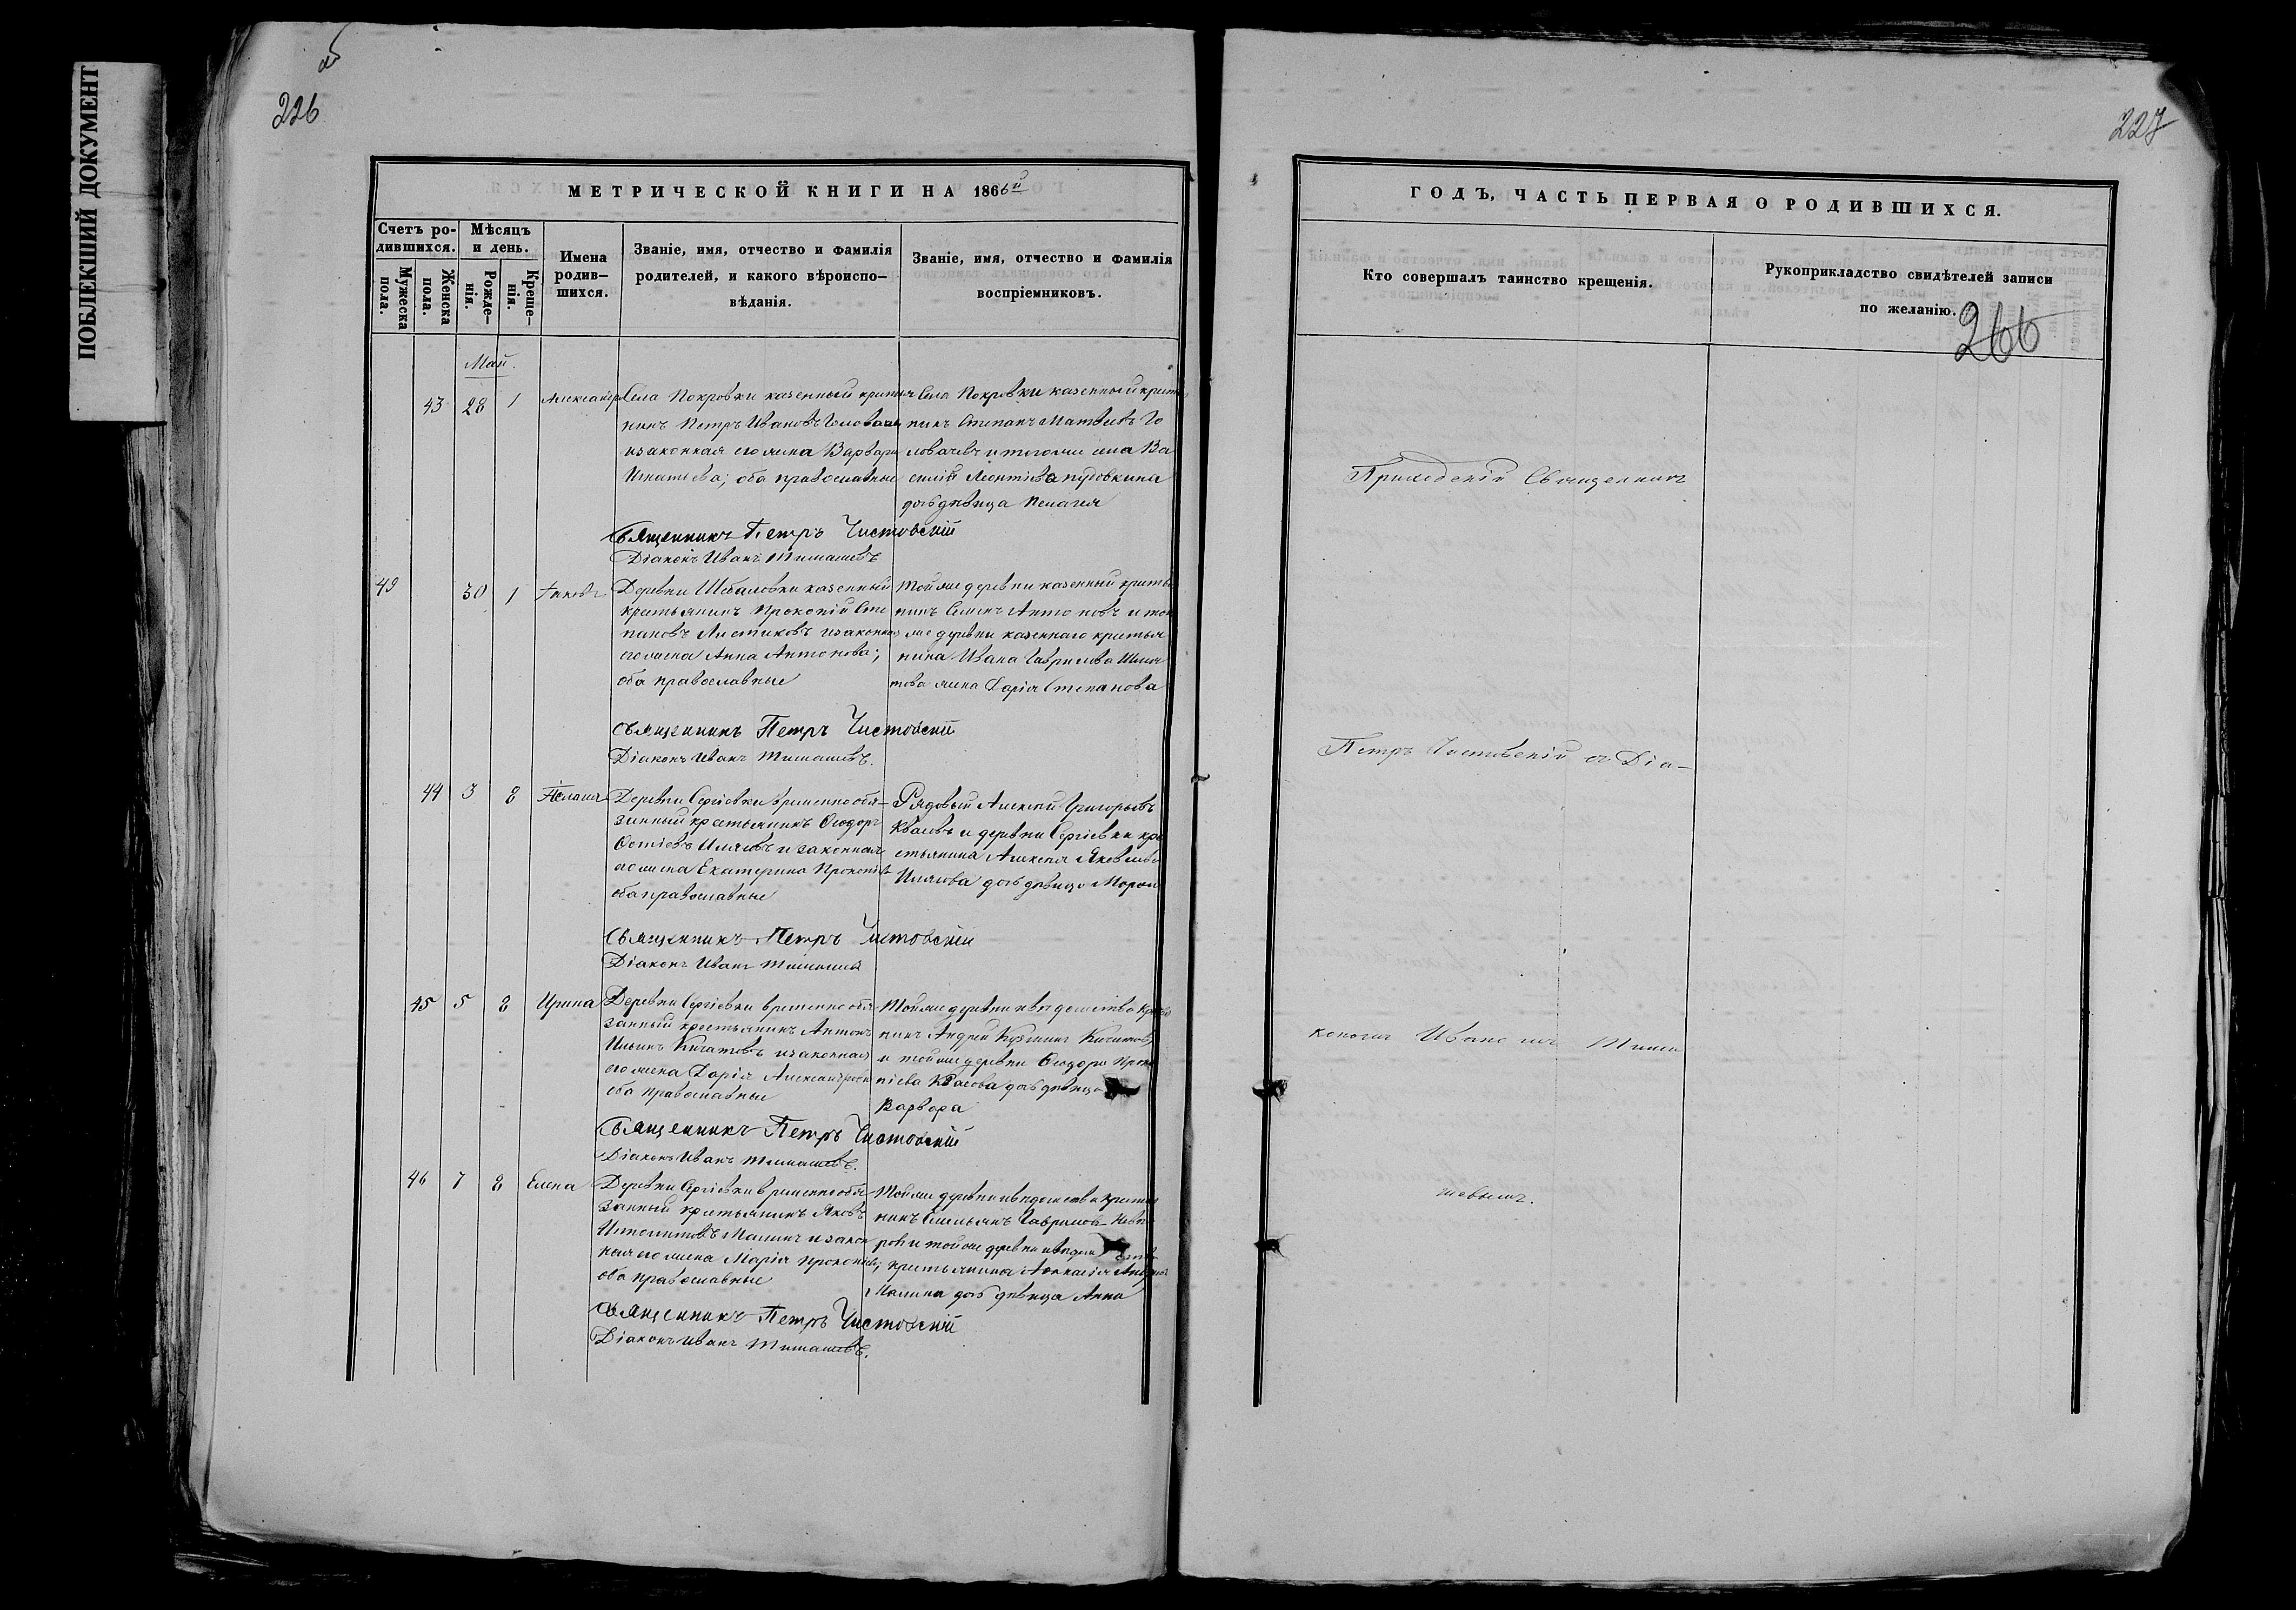 ПОБЛЕКШИЙ ДОКУМЕНТ
226
227
МЕТРИЧЕСКОЙ КНИГИ НА 1866й
Счетъ ро-
дившихся.
Мужеска пола.
Женска пола.
Мѣсяцъ
и день.
Рожде-
нія.
Креще-
нія.
Имена
родив-
шихся.
Званіе, имя, отчество и фамилія
родителей, и какого вѣроиспо-
вѣданія.
Званіе, имя, отчество и фамилія
воспріемниковъ.
Май.
43 28 1
Села Покровки казенный крестья
нинъ Петръ Ивановъ
изаконная его жена Варвара
Игнатьева; оба православные
Села Покровки казенный крестья
нинъ Степанъ Матвеевъ Го
ловачевъ и того же села Ва
силій Леонтіева
дочь дѣвица Пелагея
Священникъ Петръ Чистовскій
Діаконъ Иванъ Тимашевъ
49 30 1
Деревни казенный
крестьянинъ Прокопій Сте
пановъ Листиковъ изаконная
его жена Анна Антонова;
оба православные
Той же деревни казенный крестья
нинъ Семенъ Антоновъ и той
же деревни казеннаго крестья
нина Ивана Гаврилова
жена Дарія Степанова
Священникъ Петръ Чистовскій
Діаконъ Иванъ Тимашевъ.
44 3 8
Деревни Сергіевки временно обя-
занный крестьянинъ Ѳеодоръ
и законная
его жена Екатерина Прокопіева
оба православные
Рядовый Алексей Григорьевъ
Квасовъ и деревни Сергіевки кре
стьянина Алексея Яковлева
дочь дѣвица
Священникъ Петръ Чистовскій
Діаконъ Иванъ Тимашевъ
45 5 8 Ирина
Деревни Сергіевки временно обя
занный крестьянинъ Антонъ
Ильинъ Кичатовъ изаконная
его жена Дарія Александрова
оба православные
Той же деревни и вѣдомства кресть
нинъ Андрей Кузминъ Кичатовъ
и той же деревни Ѳеодора Проко
піева Квасова дочь дѣвица
Варвара
Священникъ Петръ Чистовскій
Діаконъ Иванъ Тимашевъ.
46 7 8 Елена
Деревни Сергіевки временно обя
занный крестьянинъ Яковъ
Ипполитовъ Малинъ изакон
ная его жена Марія Прокопіева;
оба православные
Той же деревни и вѣдомства крестья
нинъ Емельянъ Гавриловъ
и той же деревни и вѣдом ства
крестьянина
Малина дочь дѣвица Анна
Священникъ Петръ Чистовскій
Діаконъ Иванъ Тимашевъ.
ГОДЪ, ЧАСТЬ ПЕРВАЯ О РОДИВШИХСЯ.
Кто совершалъ таинство крещенія.
Рукоприкладство свидѣтелей записи
по желанію.
266
Приходскій Священникъ
Петръ Чистовскій съ Діа-
кономъ Иваномъ Тима
шевымъ.